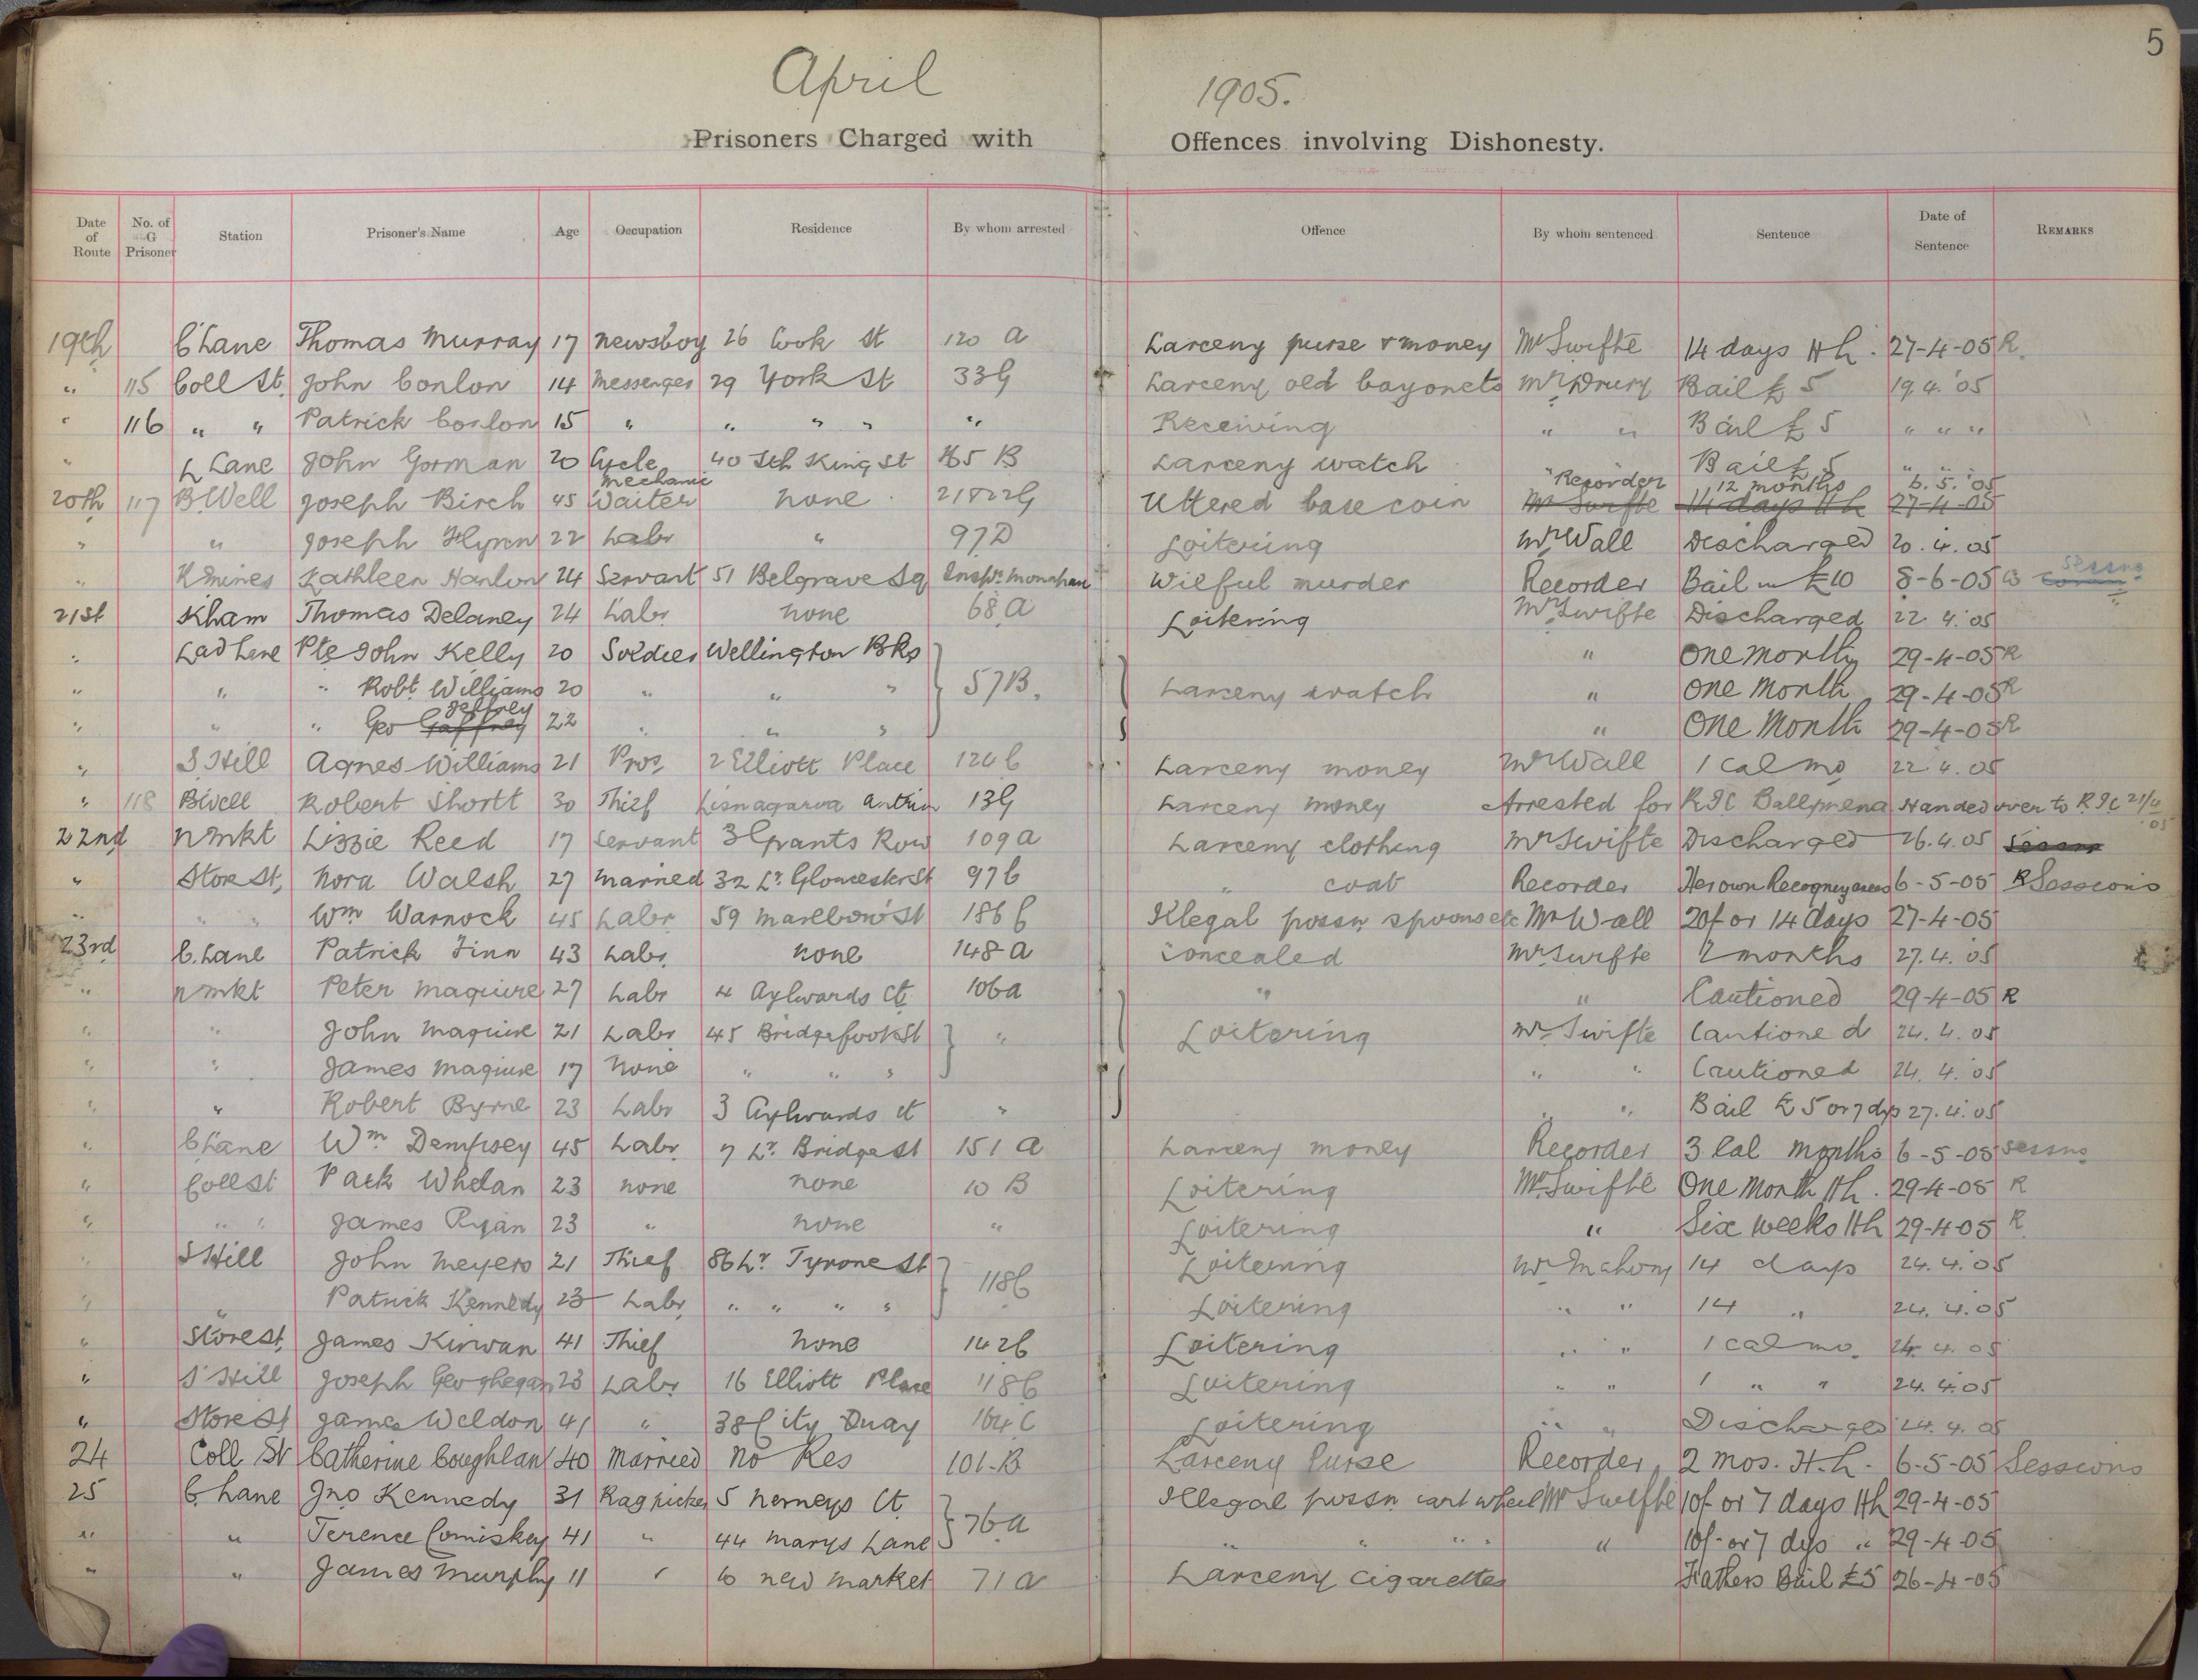 5
April 1905.
Prisoners Charged with Offences involving Dishonesty.
Date of Route | No. of G Prisoner | Station | Prisoner's Name | Age | Occupation | Residence | By whom arrested | Offence | By whom sentenced | Sentence | Date of Sentence | REMARKS
19th C Lane Thomas Murray 17 Newsboy 26 Cook St 120 A Larceny purse & money Mr Swifte 14 days H L. 27-4-05 R.
" 115 Coll St. John Conlon 14 Messenger 29 York St 33G Larceny old bayonets Mr Drury Bail £5 19.4.'05
" 116 " " Patrick Conlon 15 " " " " " Receiving " " Bail £5 " " "
" L Lane John Gorman 20 Cycle Mechanic 40 Sth King St 165 B Larceny watch " Bail £5 " " "
20th 117 B.Well Joseph Birch 45 Waiter none 21&22G Uttered base coin Recorder Mr Swifte 12 months 14 days H L 6.5.'05 27-4-05
" " Joseph Flynn 22 Labr " 97D Loitering Mr Wall Discharged 20.4.05
" R Mines Kathleen Hanlon 24 Servant 51 Belgrave Sq Inspr. Monahan Wilful murder Recorder Bail in £10 8-6-05 Sessns
21st Kham Thomas Delaney 24 Labr none 68 A Loitering Mr Swifte Discharged 22.4.'05
" Lad Lane Pte John Kelly 20 Soldier Wellington Bks " One month 29-4-05 R
" " " Robt Williams 20 " " " 57B. Larceny watch " One Month 29-4-05 R
" " " Geo Gaffney Jeffrey 22 " " " " One Month 29-4-05 R
" S Hill Agnes Williams 21 Pros. 2 Elliott Place 124 C Larceny money Mr Wall 1 cal mo 22.4.05
" 118 BWell Robert Shortt 30 Thief Lisnagarva Antrim 13G Larceny money Arrested for R I C Ballymena Handed over to R.I.C 21/4/05
22nd N Mkt Lizzie Reed 17 Servant 3 Grants Row 109 A Larceny clothing Mr Swifte Discharged 26.4.05 Sessns
" Store St, Nora Walsh 27 Married 32 Lr. Gloucester St 97C " coat Recorder Her own 6-5-05 R Sessions
" " " Wm Warnock 45 Labr 59 Marlboro' St 186 C Illegal possn spoons etc Mr Wall 20/- or 14 days 27-4-05
23rd C. Lane Patrick Finn 43 Labr. none 148-A Concealed Mr Swifte 2 months 27.4.'05
" N Mkt Peter Maguire 27 Labr 4 Aylwards Ct 106A " " Cautioned 29-4-05 R
" " John Maguire 21 Labr 45 Bridgefoot St " Loitering Mr Swifte Cautioned 24.4.05
" " James Maguire 17 None " " " " " Cautioned 24.4.'05
" " Robert Byrne 23 Labr 3 Aylwards ct " " " Bail £5 or 7 dys 27.4.'05
" C Lane Wm Dempsey 45 Labr. 7 Lr. Bridge St 151 A Larceny money Recorder 3 Cal months 6-5-05 Sessns
" Coll St Patk Whelan 23 none none 10 B Loitering Mr Swifte One Month H L. 29-4-05 R
" " " James Ryan 23 " none " Loitering " Six weeks H L 29-4-05 R.
" S Hill John Meyers 21 Thief 86 Lr. Tyrone St 118C Loitering Mr Mahony 14 days 24.4.'05
" " Patrick Kennedy 23 Labr. " " " " Loitering " " 14 " 24.4.'05
" Store St, James Kirwan 41 Thief None 142C Loitering " " 1 cal mo. 24.4.05
" S' Hill Joseph Geoghegan 23 Labr 16 Elliott Place 118C Loitering " " 1 " " 24.4.'05
" Store St James Weldon 41 " 38 City Quay 164 C Loitering " " Discharged 24.4.05
24 Coll St Catherine Coughlan 40 Married No Res 101-B Larceny Purse Recorder 2 mos. H.L. 6-5-05 Sessions
25 C. Lane Jno Kennedy 31 Rag picker 5 Nerneys Ct 76A Illegal possn cart wheel Mr Swifte 10/- or 7 days H L 29-4-05
" " Terence Comiskey 41 " 44 Marys Lane " " " " " 10/- or 7 dys " 29-4-05
" " James Murphy 11 " 10 New Market 71 A Larceny Cigarettes Fathers Bail £5 26-4-05